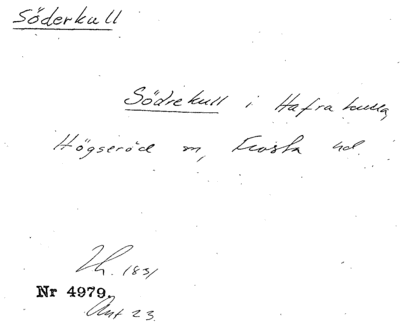 Söderkull
Södrekull i Hafra kulla,
Högseröd sn, Frosta hd.
Lh. 1831
Nr 4979.
Ant 23